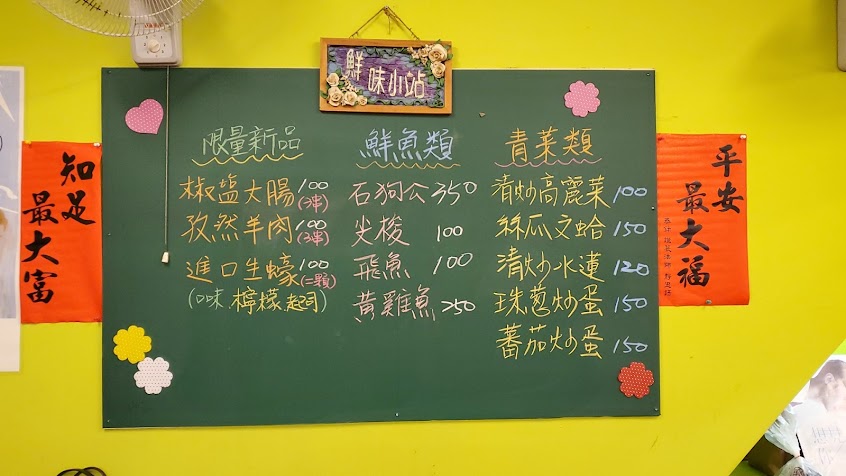 鮮味小站
限量新品
椒塩大腸 100 (3串)
孜然羊肉 100 (3串)
進口生蠔 100 (二顆)
(口味.檸檬.起司)
鮮魚類
石狗公 350
尖梭 100
飛魚 100
黃雞魚 250
青菜類
清炒高麗菜 100
絲瓜文蛤 150
清炒水蓮 120
珠蔥炒蛋 150
蕃茄炒蛋 150
知足
最大富
平安
最大福